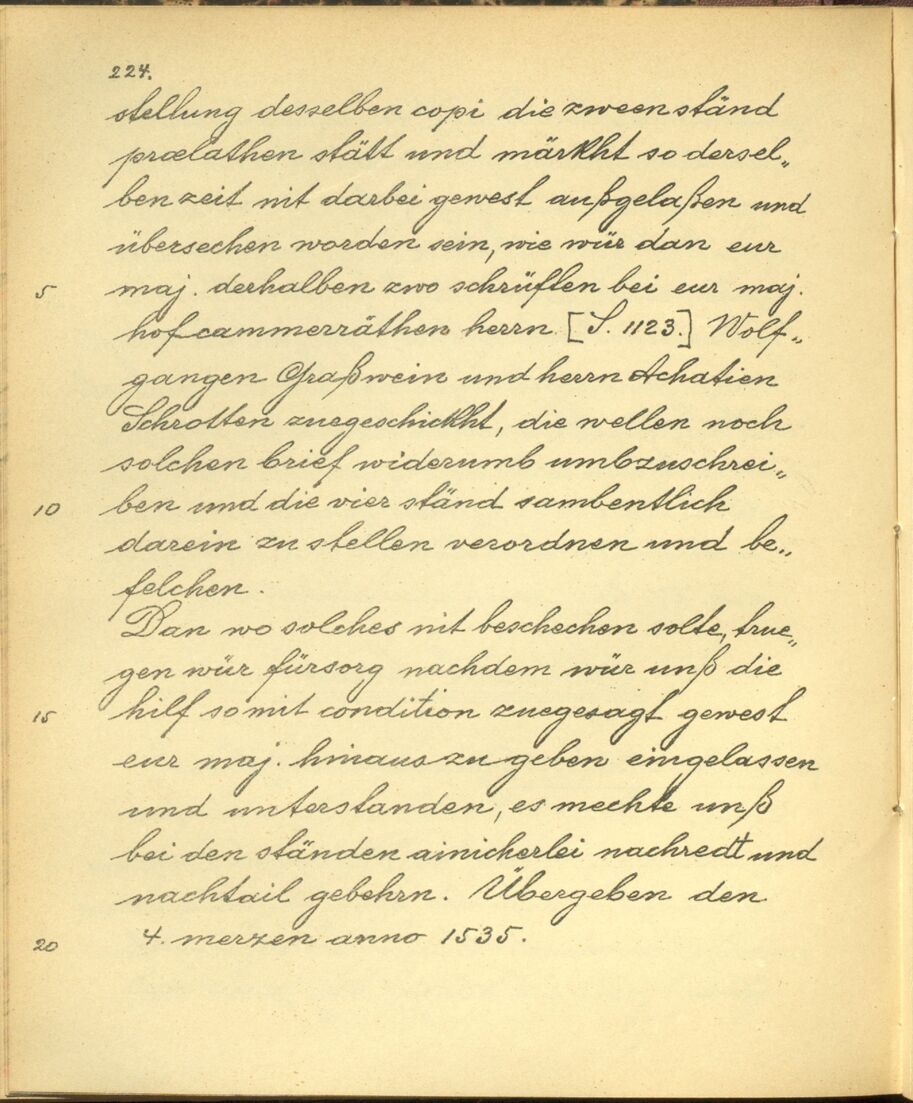 224.
stellung desselben copi die zween ständ
prælathen stätt und märkht so dersel„
ben zeit nit darbei gewest außgelaßen und
übersechen worden sein, wie wür dan eur
5 maj. derhalben zwo schrüften bei eur maj.
hofcammerräthen herrn [S. 1123.] Wolf„
gangen Graßwein und herrn Achatien
Schrotten zuegeschickht, die wellen noch
solchen brief widerumb umbzuschrei„
10 ben und die vier ständ sambentlich
darein zu stellen verordnen und be„
felchen.
Dan wo solches nit beschechen solte, true„
gen wür fürsorg nachdem wür unß die
15 hilf so mit condition zuegesagt gewest
eur maj. hinaus zu geben eingelassen
und unterstanden, es mechte unß
bei den ständen ainicherlei nachredt und
nachtail gebehrn. Übergeben den
20 4. merzen anno 1535.